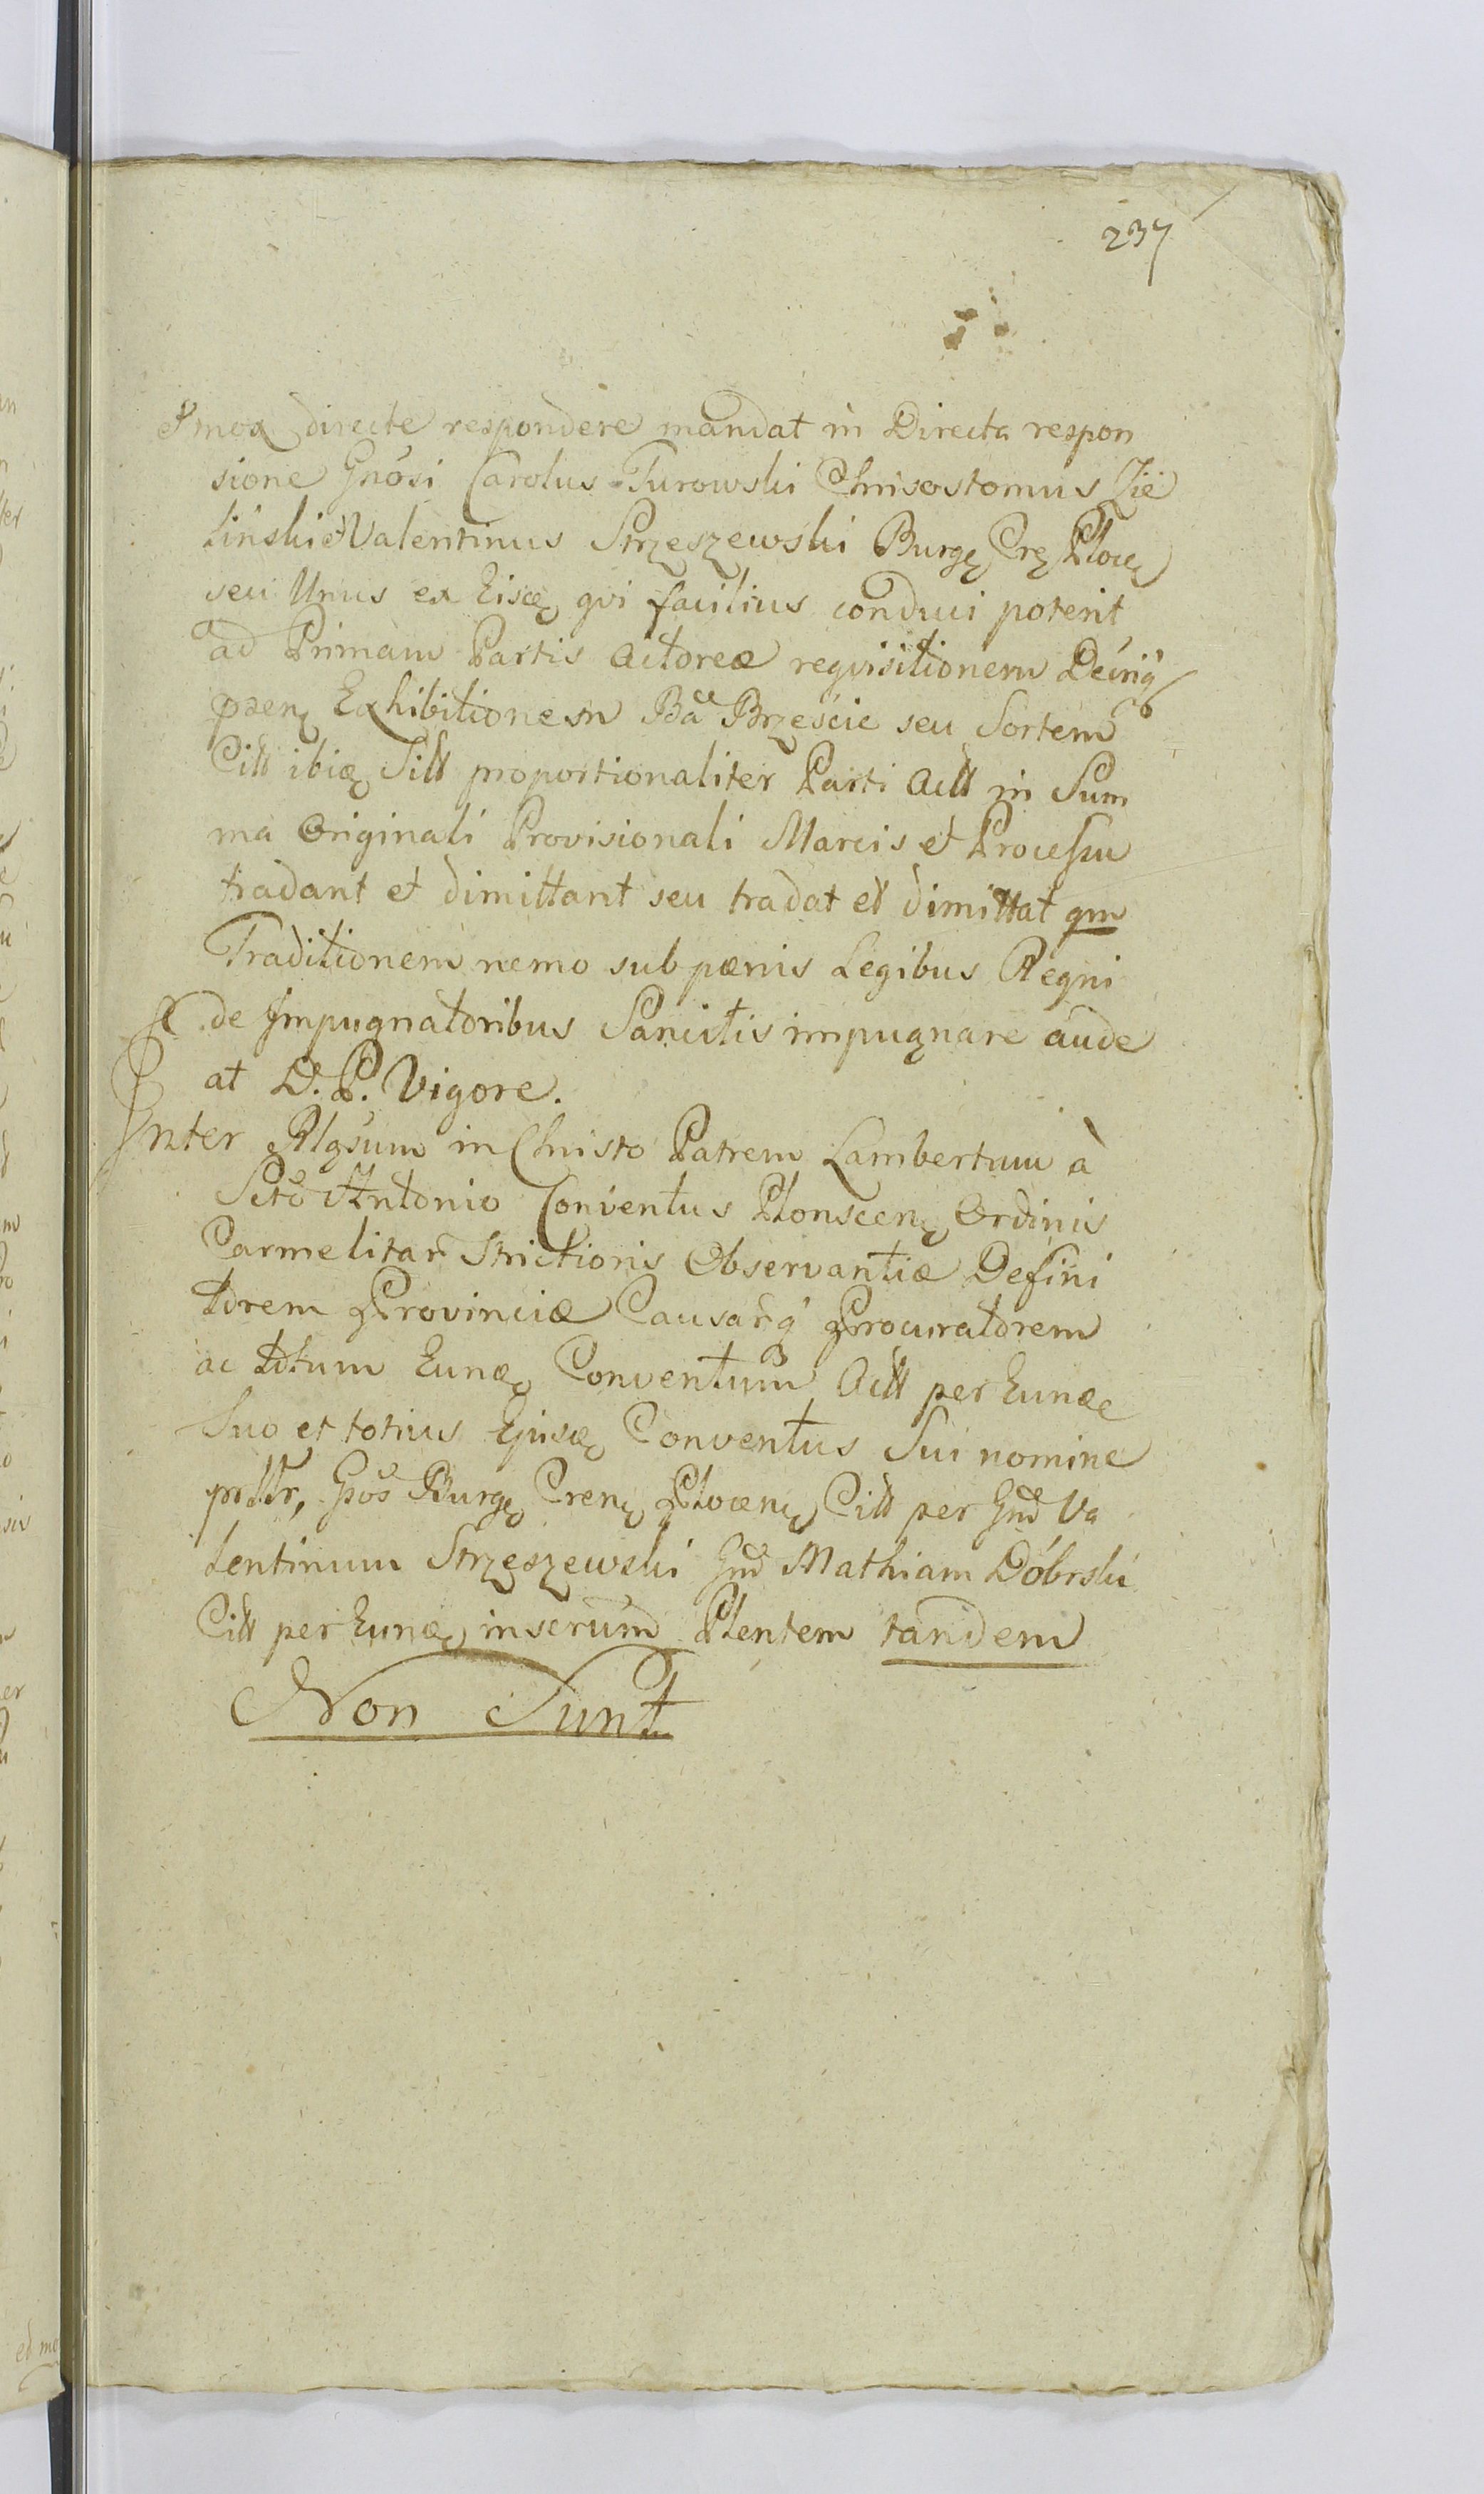 237
Et mox directe respondere mandat in Directa respon
sione Gnosi Carolus Turowski Chrisostomus Zie
liński et Valentinus Strzeszewski Burgę Crę Ploceę
seu Unus ex Eisdę qvi facilius conduci poterit
ad Primam Partis Actoreæ reqvisitionem Decriq
pręnę Exhibitionem Bā Brzeście seu Sortem
Citt ibię Sitt proportionaliter Parti Actt in Sum
ma Originali Provisionali Marcis et Processu
tradant et dimittant seu tradat et dimittat qm
Traditionem nemo sub pœnis Legibus Regni
de Impugnatoribus Sancitis impugnare aude
at D. P. Vigore.
Inter Rlgsum in Christo Patrem Lambertum à
Scto Antonio Conventus Plonscenę Ordinis
Carmelitar Strictioris Observantiæ Defini
torem Provinciæ Causarq Procuratorem
ac totum Eundę Conventum Actt per Eundę
Suo et totius Ejusdę Conventus Sui nomine
Gos Burgę Crenę Plocenę Citt per Gnd Va
lentinum Strzeszewski Gnd Mathiam Dóbrski
Citt per Eundę inserund Plentem tandem
Non Sunt